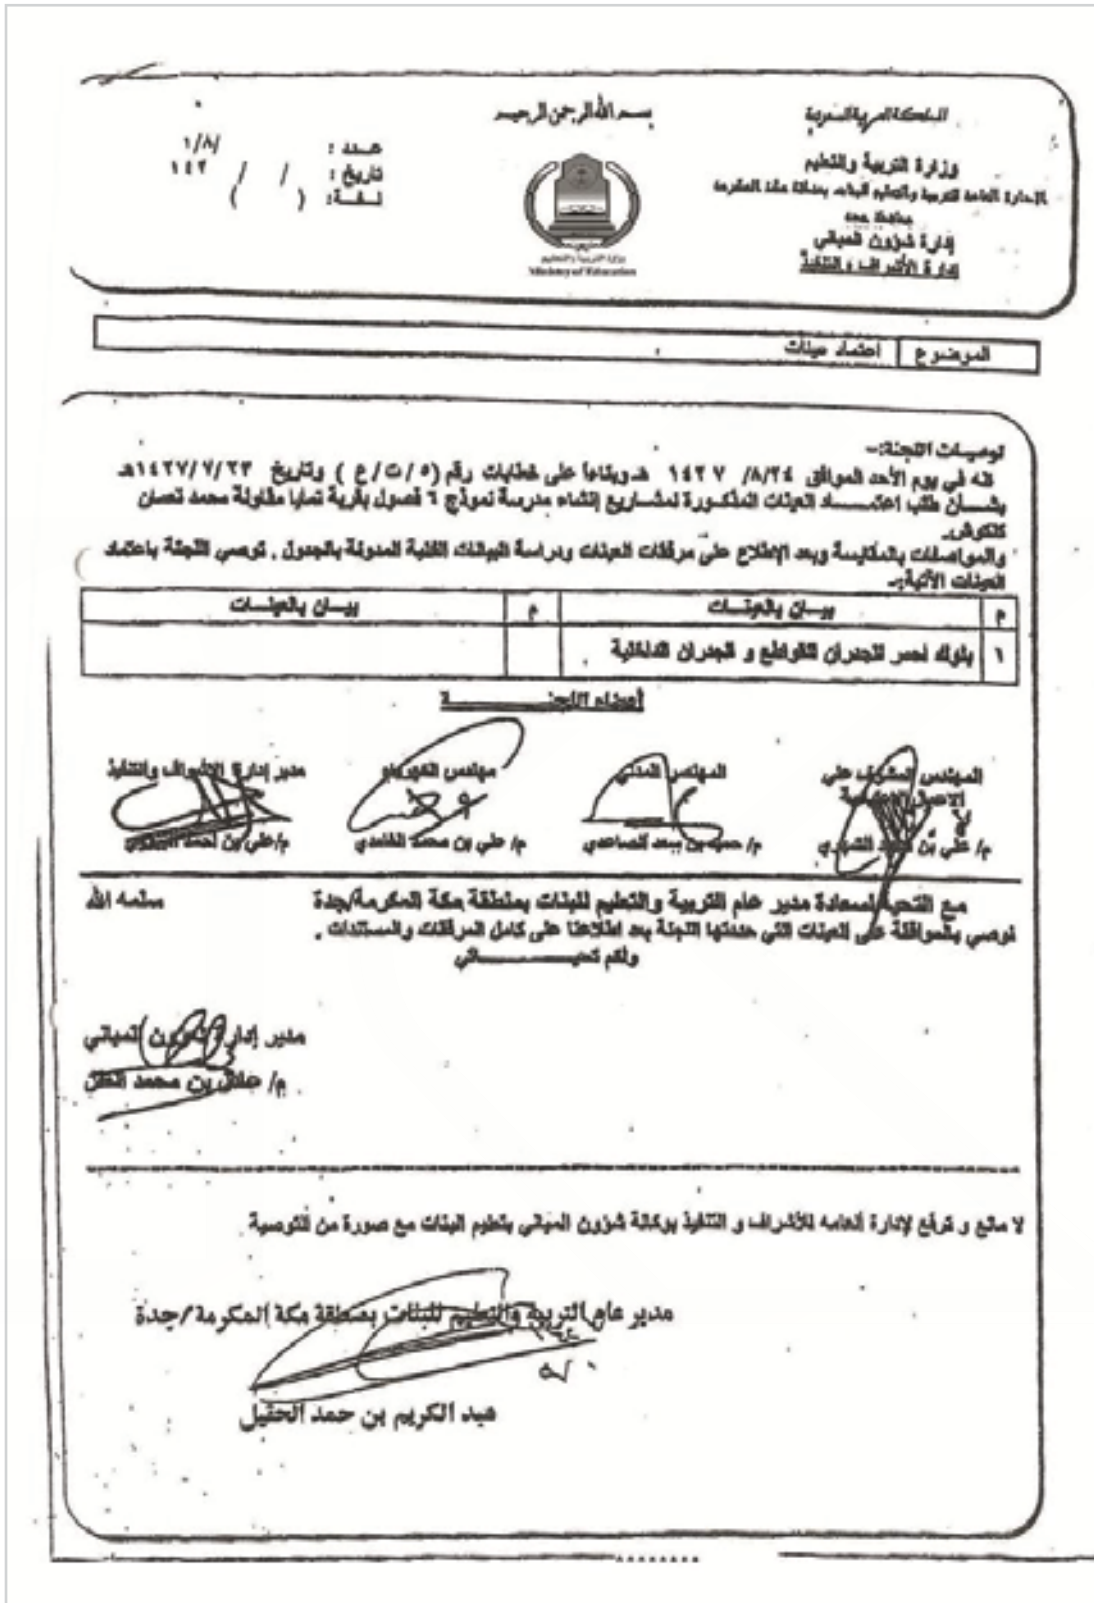 بسم الله الرحمن الرحيم
المملكة العربية السعودية
وزارة التربية والتعليم
الإدارة العامة للتربية والتعليم للبنات بمنطقة مكة المكرمة
محافظة جدة
إدارة شؤون المباني
إدارة الأشراف والتنفيذ
عدد : ١/٨/
تاريخ : / / ١٤٢
لفة: ( )
وزارة التربية والتعليم
Ministry of Education
الموضوع اعتماد عينات
توصيات اللجنة:-
انه في يوم الأحد الموافق ٨/٢٤/ ١٤٢٧ هـ وبناءاً على خطابات رقم (٥/ت/ع) وتاريخ ١٤٢٧/٧/٢٣هـ
بشـــأن طلب اعتمـــــاد العينات المذكـورة لمشـاريع إنشاء مدرسة نموذج ٦ فصول بقرية تمايا مقاولة محمد تحسان
كلكوش.
والمواصفات بالمقايسة وبعد الإطلاع على مرفقات العينات ودراسة البيانات الفنية المدونة بالجدول ، توصي اللجنة باعتماد
العينات الآتية:-
م بيـــان بالعينـــات م بيـــان بالعينـــات
١ بلوك احمر للجدران القواطع و الجدران الداخلية
أعضاء اللجنـــــــة
المهندس المشرف على المهندس المدني مهندس الكهرباء مدير إدارة الإشراف والتنفيذ
م/ علي بن الشهري م/ حميد بن سعد الصاعدي م/ علي بن محمد الغامدي م/علي بن أحمد
مع التحية لسعادة مدير عام التربية والتعليم للبنات بمنطقة مكة المكرمة/جدة سلمه الله
نوصي بالموافقة على العينات التي حددتها اللجنة بعد اطلاعنا على كامل المرفقات والمستندات .
ولكم تحيـــــــــاتي
مدير إدارة شؤون المباني
م/ بن محمد
لا مانع و ترفع لإدارة العامه للأشراف و التنفيذ بوكالة شؤون المباني بتعليم البنات مع صورة من التوصية
مدير عام التربية والتعليم للبنات بمنطقة مكة المكرمة/جدة
عبد الكريم بن حمد الحقيل